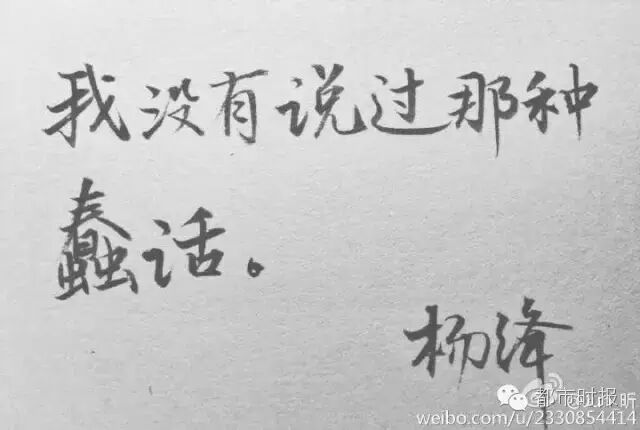 我没有说过那种
蠢话。
杨绛
都市时报
weibo.com/u/2330854414